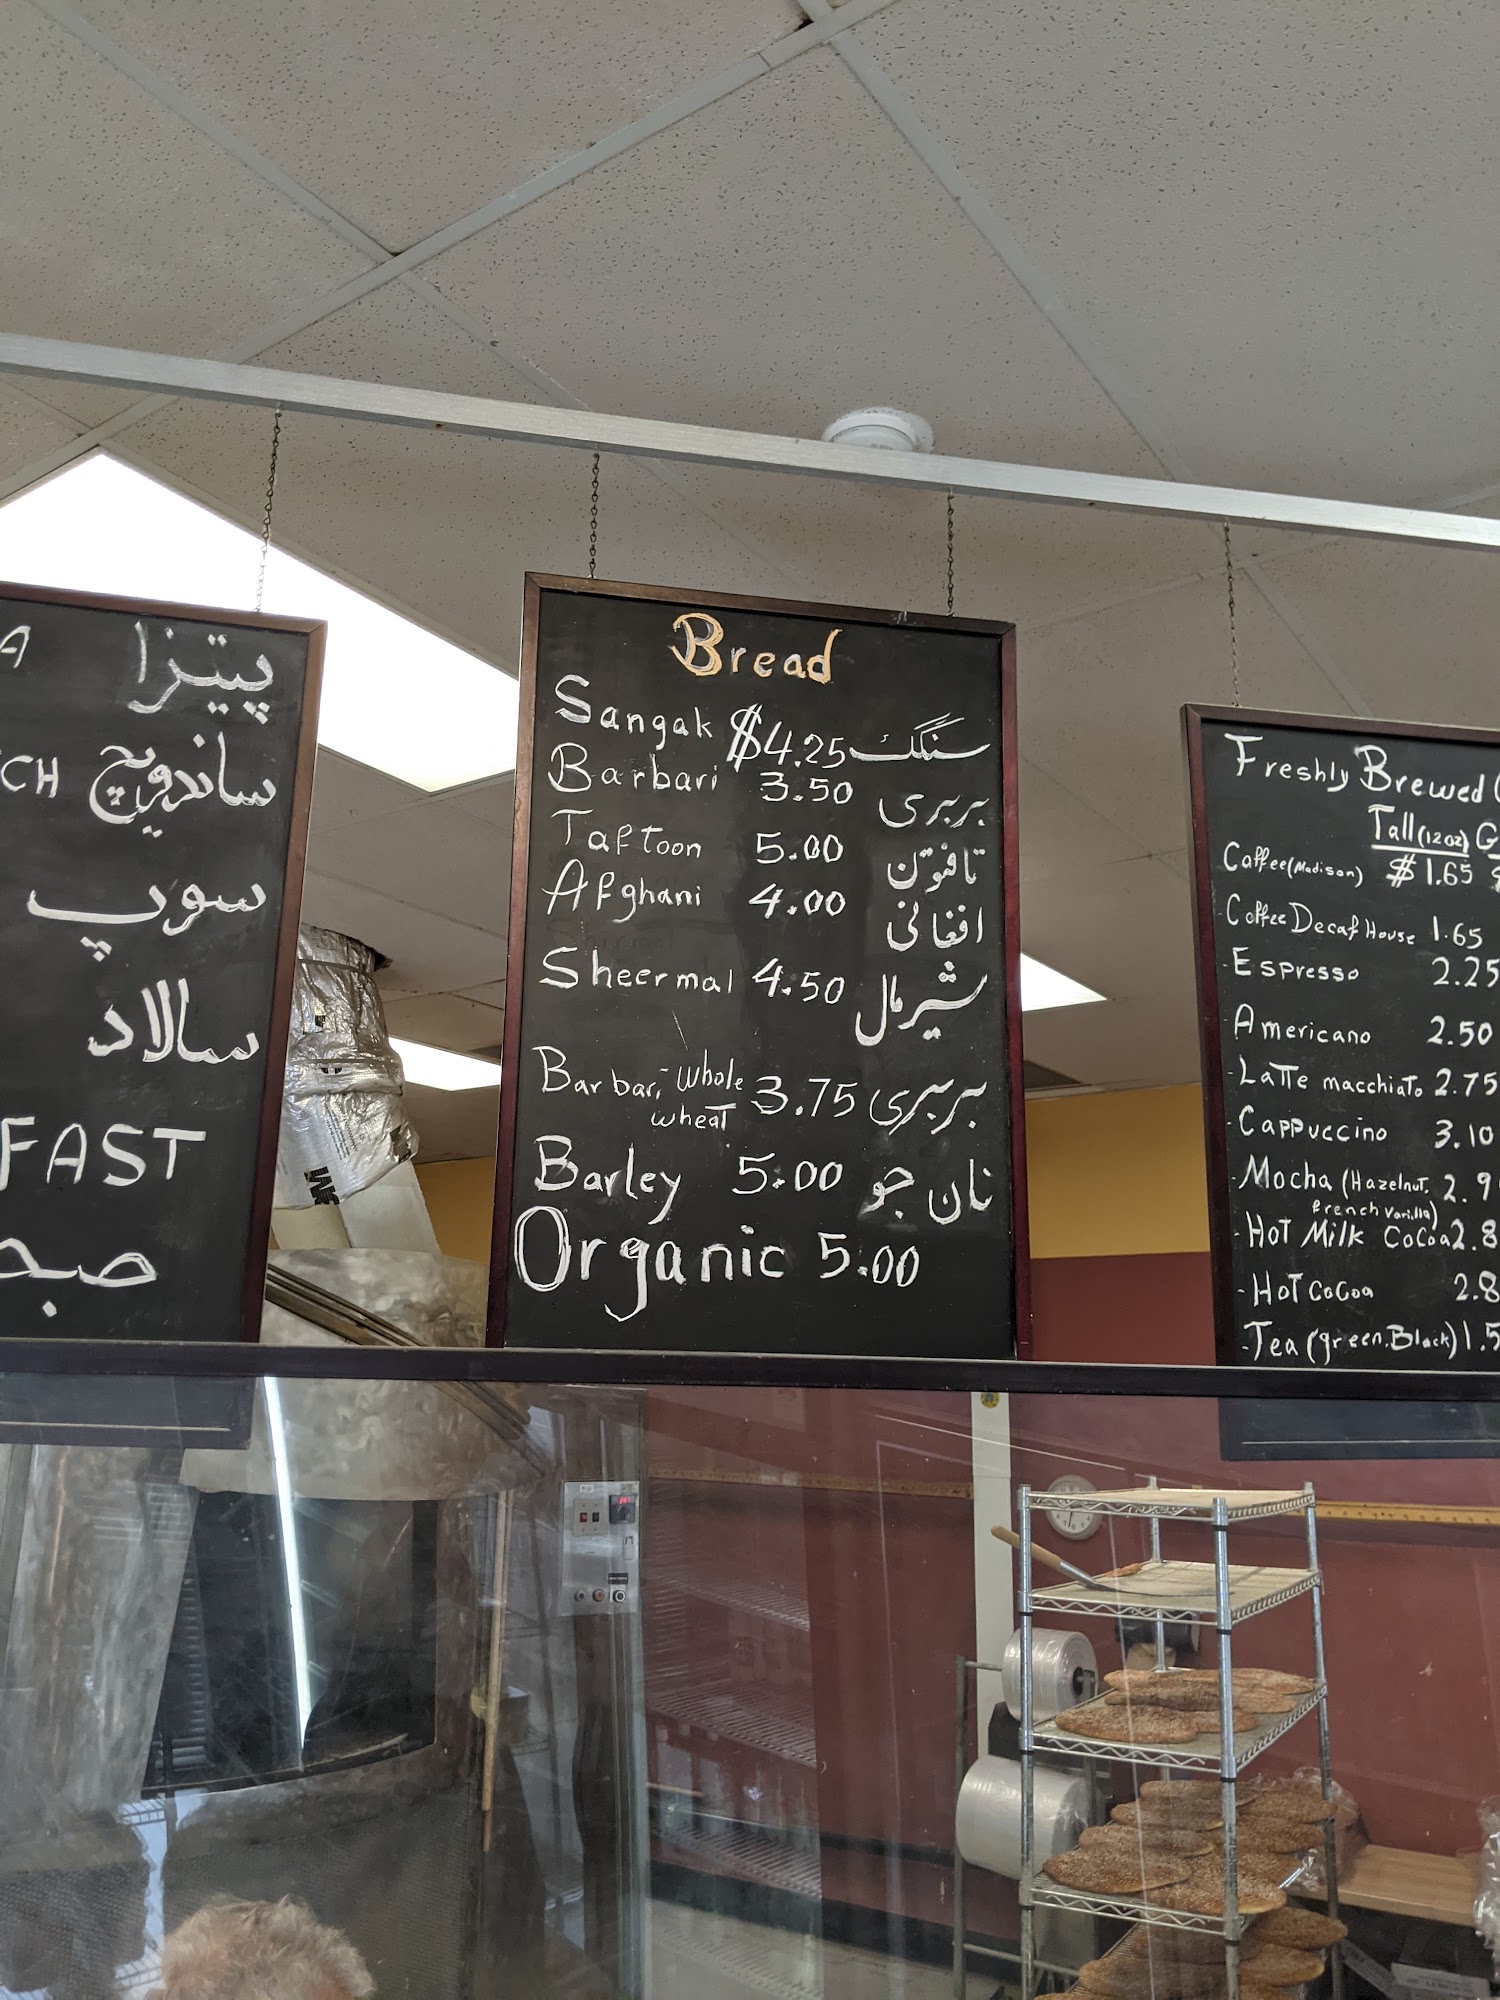 A پیتزا
CH ساندویچ
سوپ
سالاد
FAST
Bread
Sangak $4.25 سنگک
Barbari 3.50 بربری
Taftoon 5.00 تافتون
Afghani 4.00 افغانی
Sheermal 4.50 شیرمال
Barbari-whole wheat 3.75 بربری
Barley 5.00 نان جو
Organic 5.00
Freshly Brewed
Tall (12oz) G
Caffee (Madison) $1.65 $
Coffee Decaf House 1.65
-Espresso 2.25
-Americano 2.50
-Latte macchiato 2.75
-Cappuccino 3.10
-Mocha (Hazelnut, french Vanilla) 2.9
-Hot Milk Cocoa 2.8
-Hot Cocoa 2.8
-Tea (green, Black) 1.5